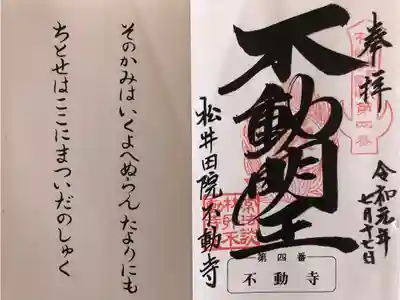 奉拝
不動明王
令和元年
七月十七日
松井田院不動寺
第四番
不動寺
そのかみはいくよへぬらんたよりにも
ちとせはここにまついだのしゅく